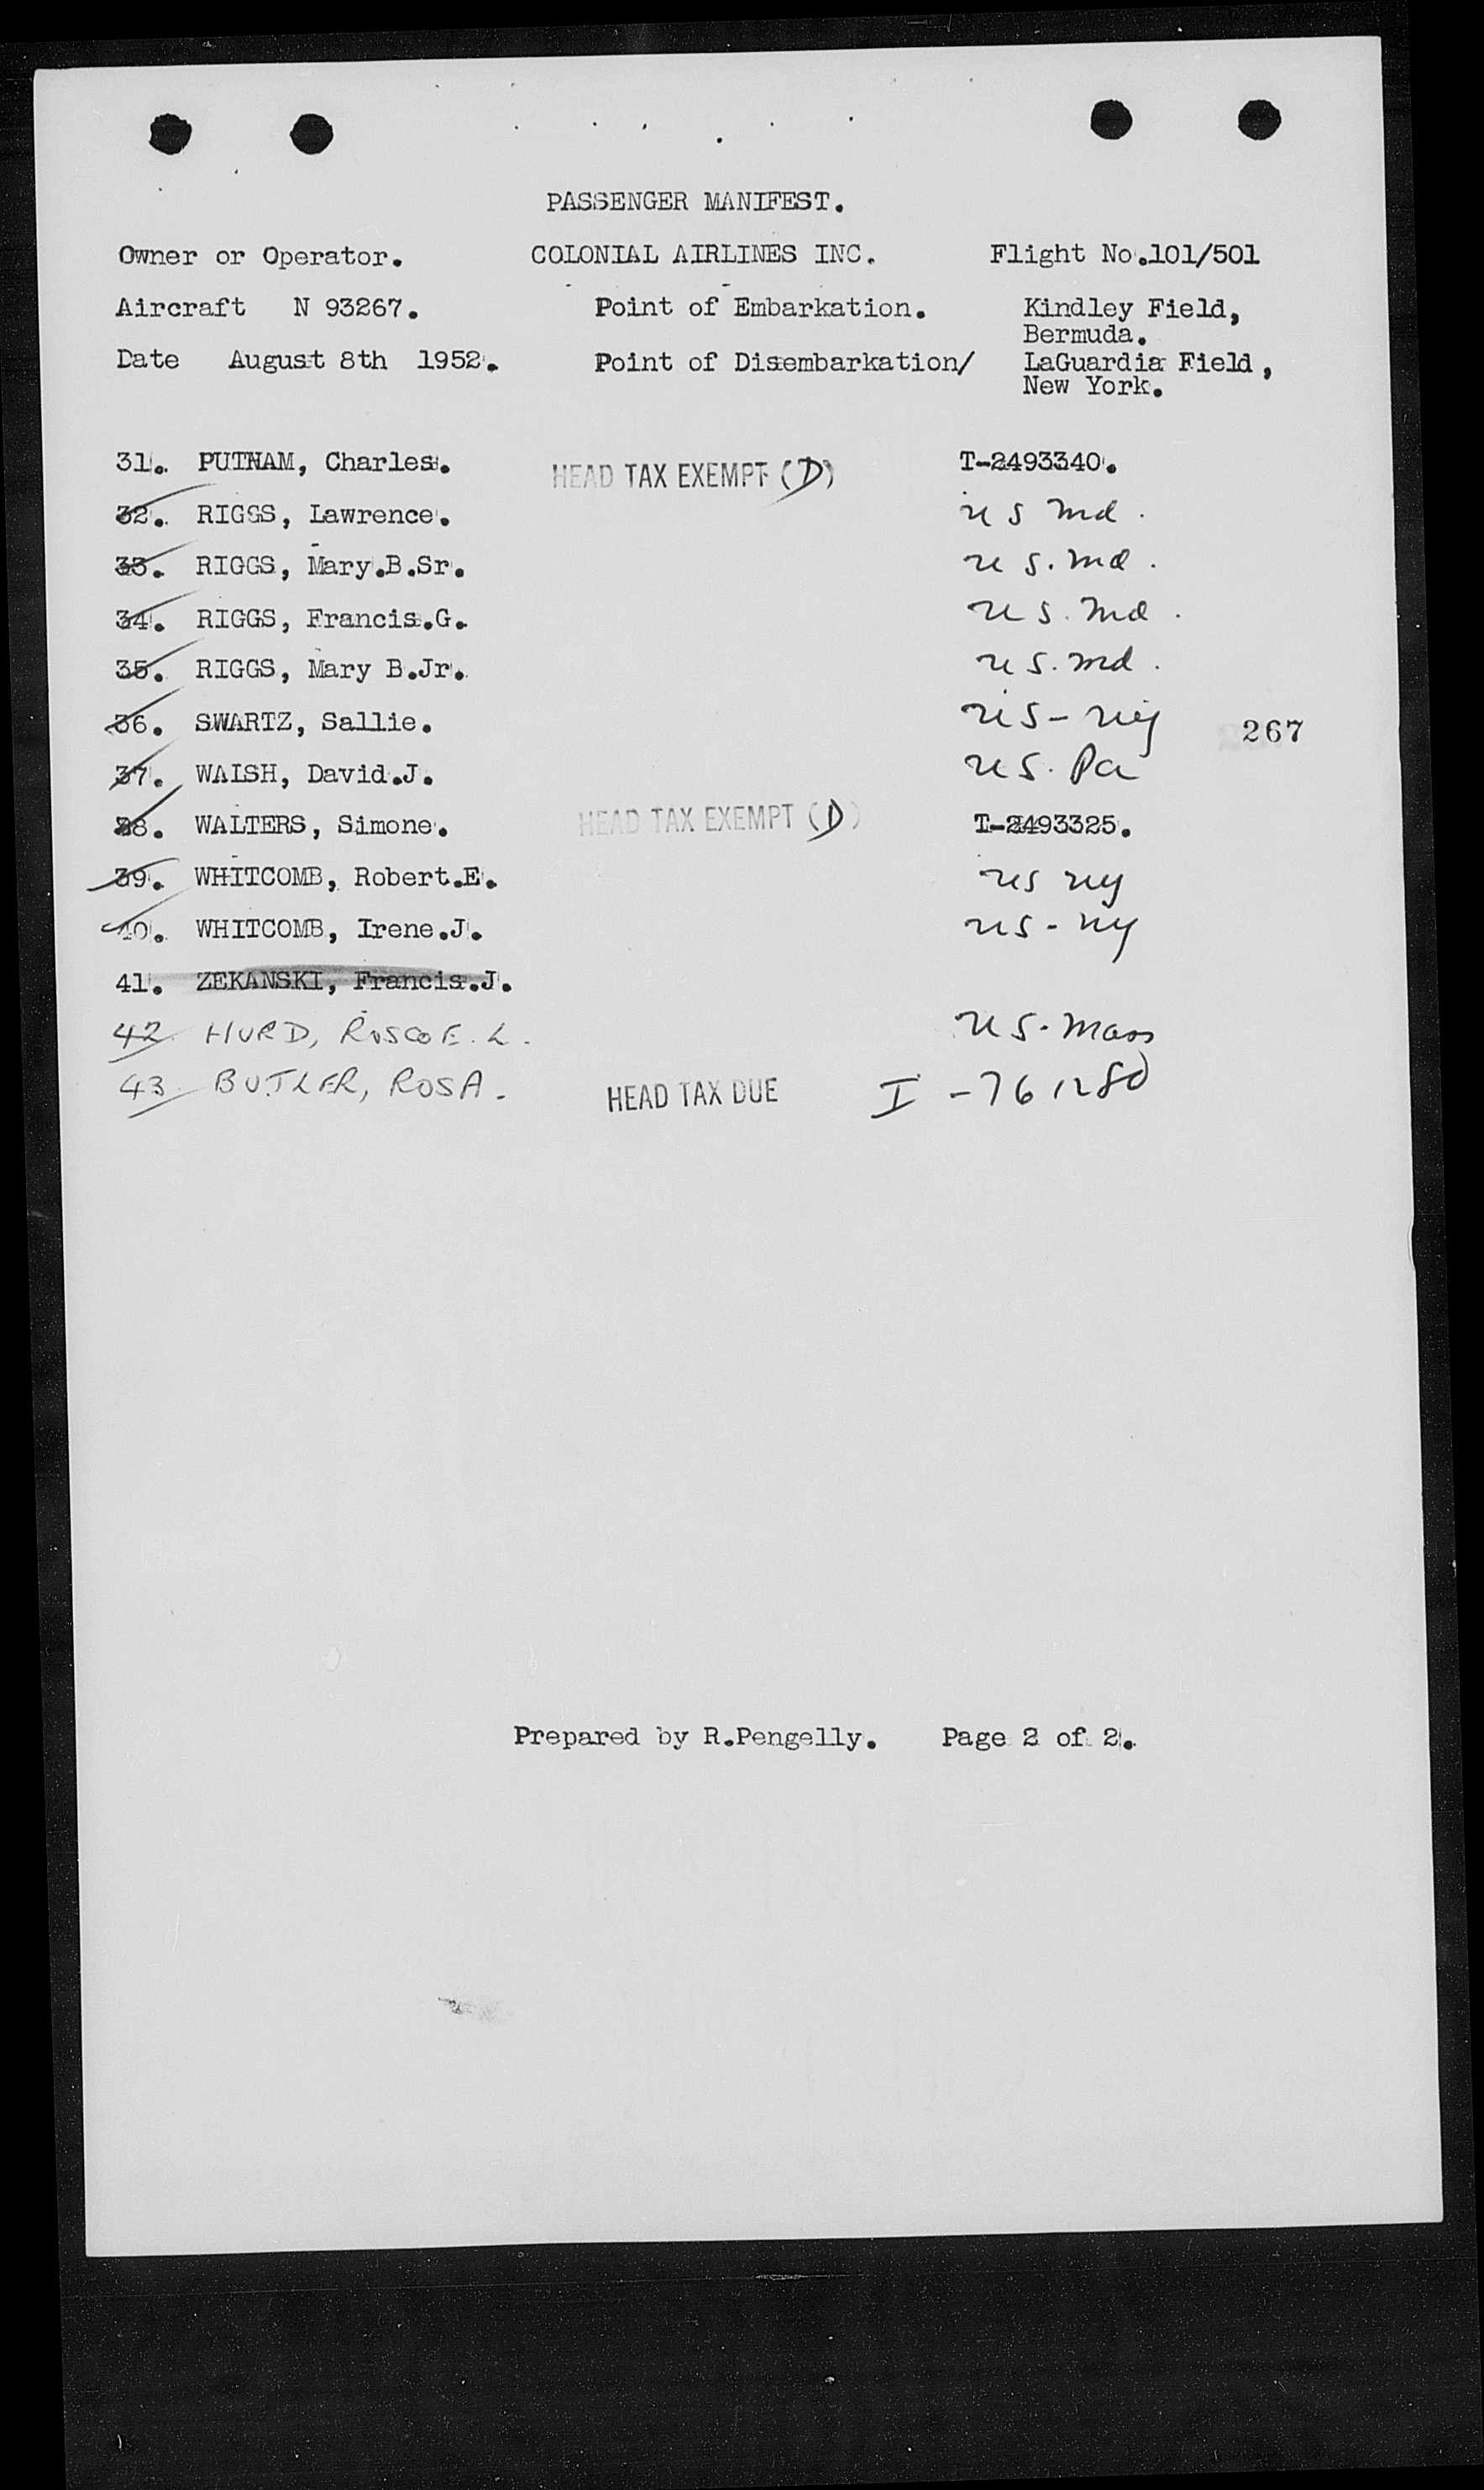 PASSENGER MANIFEST.
Owner or Operator. COLONIAL AIRLINES INC. Flight No.101/501
Aircraft N 93267. Point of Embarkation. Kindley Field,
Bermuda.
Date August 8th 1952. Point of Disembarkation/ LaGuardia Field,
New York.
31. PUTNAM, Charles. HEAD TAX EXEMPT (D) T-2493340.
32. RIGGS, Lawrence. US Md.
33. RIGGS, Mary.B.Sr. US. Md.
34. RIGGS, Francis.G. US. Md.
35. RIGGS, Mary B.Jr. US. Md.
36. SWARTZ, Sallie. US - NY
267
37. WALSH, David.J. US. Pa
38. WALTERS, Simone. HEAD TAX EXEMPT (D) T-2493325.
39. WHITCOMB, Robert.E. US NY
40. WHITCOMB, Irene.J. US - NY
41. ZEKANSKI, Francis.J.
42. HURD, ROSCOE. L. US. Mass
43. BUTLER, ROSA. HEAD TAX DUE I -761280
Prepared by R.Pengelly. Page 2 of 2.